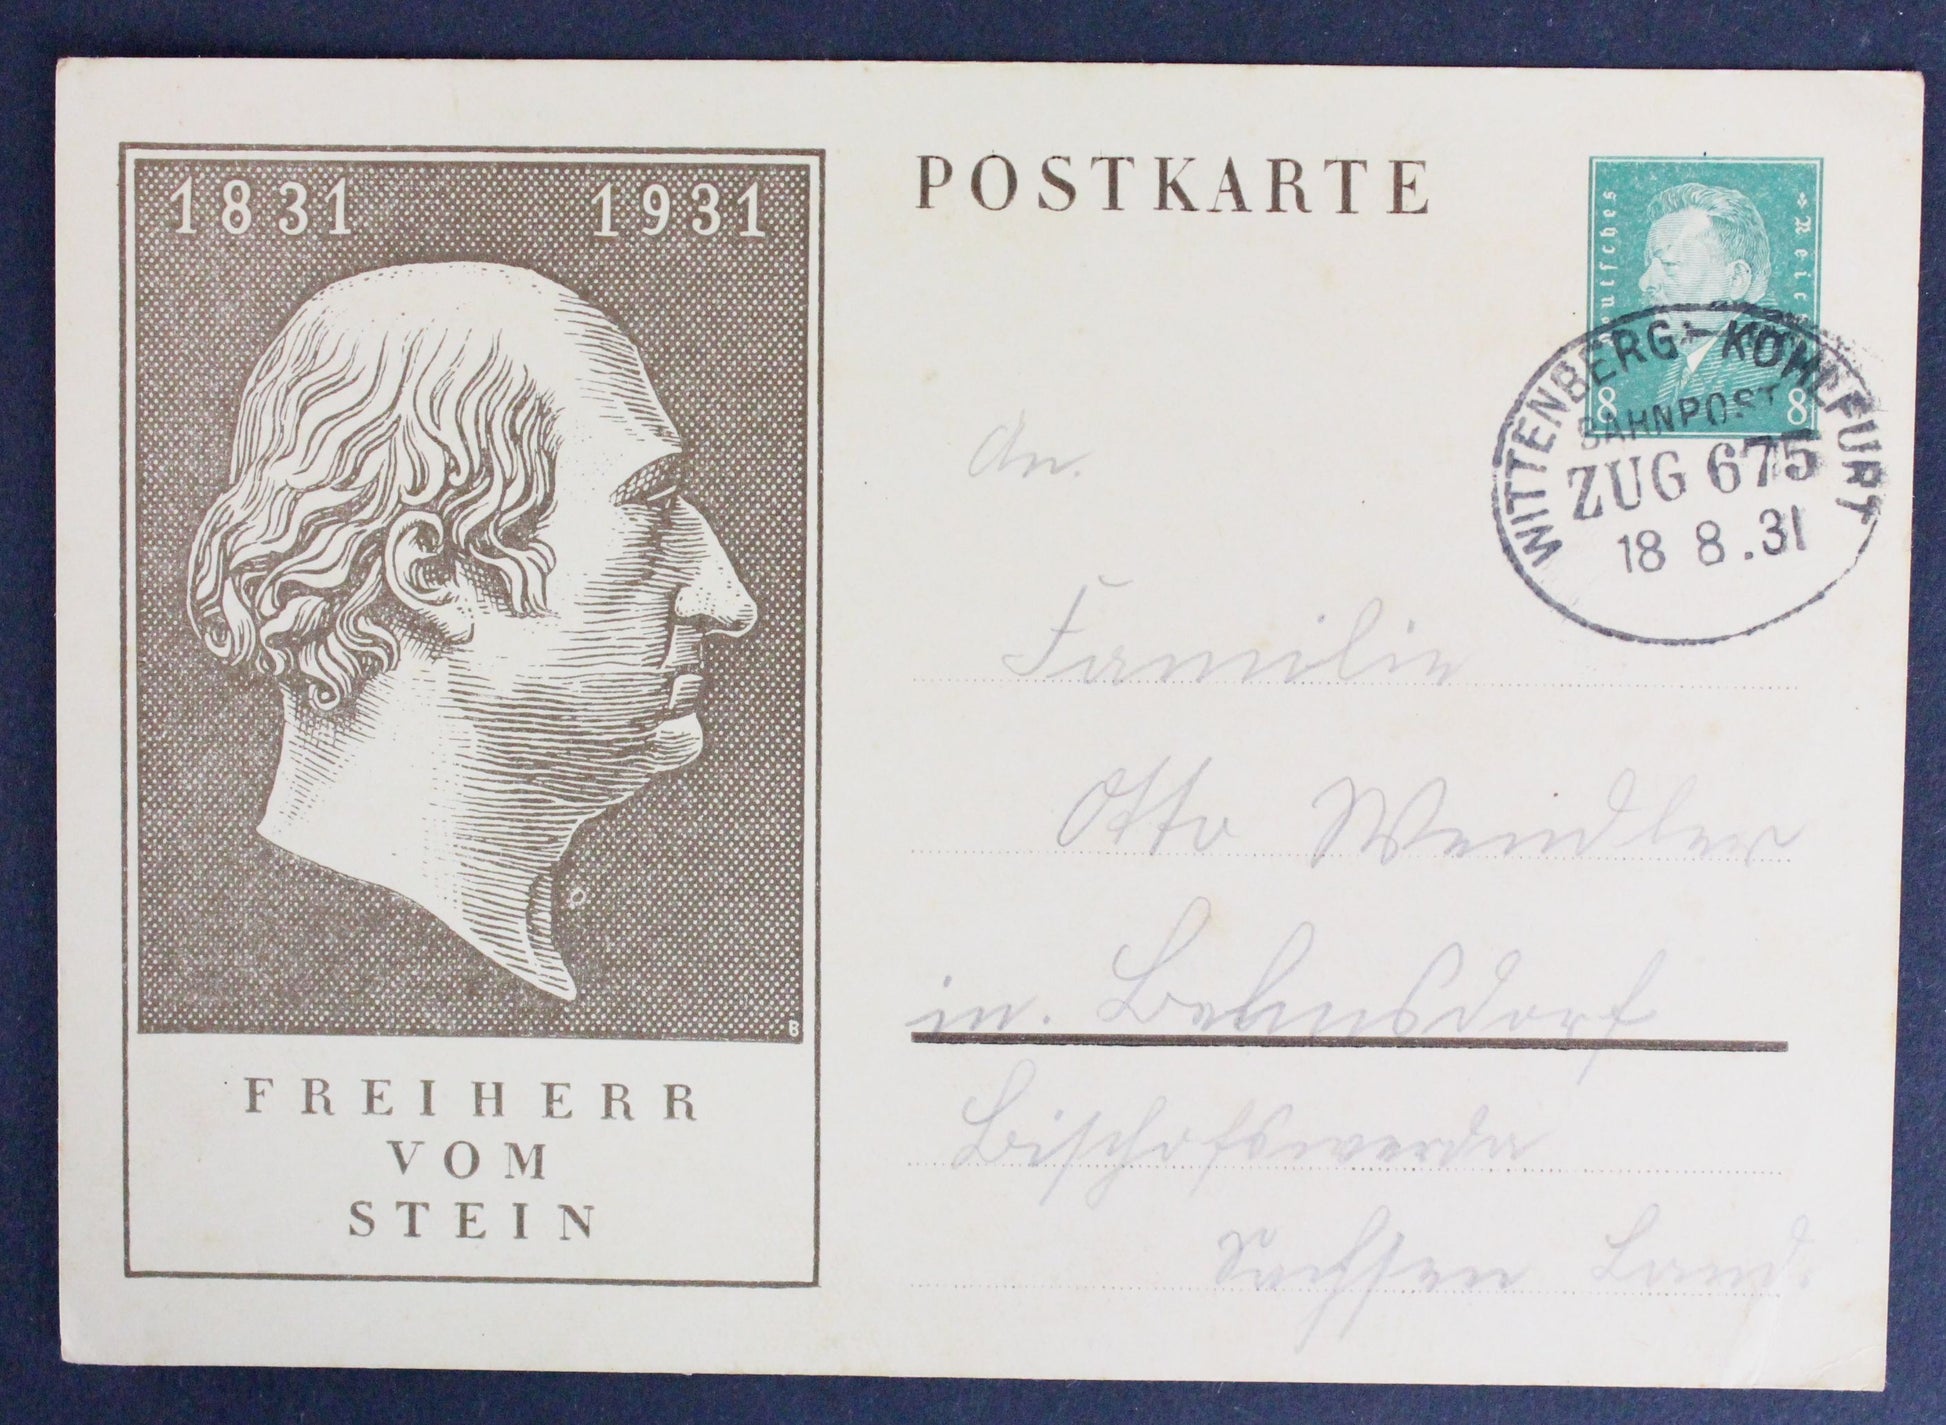 1831 1931
B
FREIHERR
VOM
STEIN
POSTKARTE
Deutsches Reich
8 8
WITTENBERG - KOHLFURT
BAHNPOST
ZUG 675
18 8.31
An.
Familie
Otto Wendler
in. Belmsdorf
Bischofswerda
Sachsen Land.